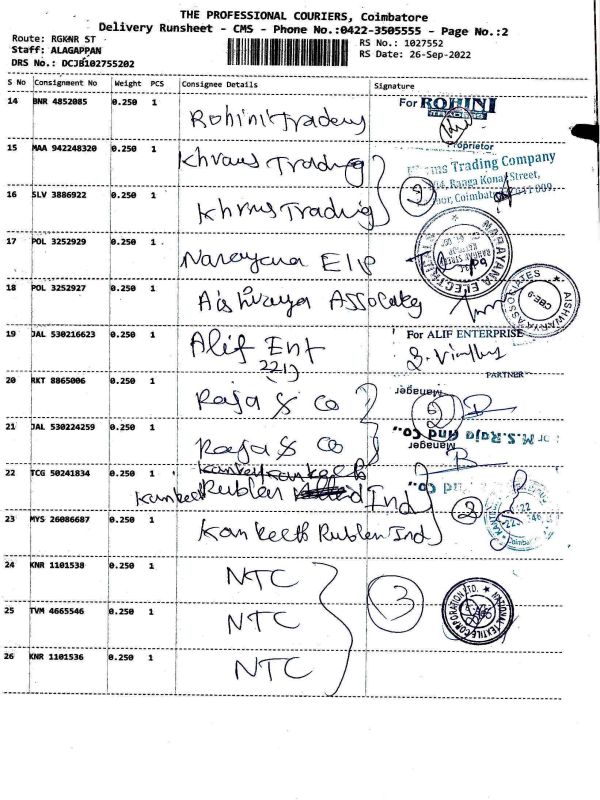 THE PROFESSIONAL COURIERS, Coimbatore
Delivery Runsheet - CMS - Phone No.:0422-3505555 - Page No.:2
Route: RGKNR ST
Staff: ALAGAPPAN
DRS No.: DCJB102755202
RS No.: 1027552
RS Date: 26-Sep-2022
S No Consignment No Weight PCS Consignee Details Signature
14 BNR 4852085 0.250 1 Rohini Traders
For ROHINI TRADING
Proprietor
15 MAA 942248320 0.250 1 Khraus Trading
Trading Company
Ranga Konar Street,
16 SLV 3886922 0.250 1 Khrus Trading
2
17 POL 3252929 0.250 1 Narayana Elp
NARAYANA ELECTRICALS
18 POL 3252927 0.250 1 Aishwarya Assocates
AISHWARYA ASSOCIATES
CBE-9
19 JAL 530216623 0.250 1 Alif Ent
For ALIF ENTERPRISE
PARTNER
(221)
20 RKT 8865006 0.250 1 Raja & Co
Manager
2
21 JAL 530224259 0.250 1 Raja & Co
For M.S.Raja And Co.,
Manager
22 TCG 50241834 0.250 1 Kankeeth Rublen Ind
And Co.,
2
23 MYS 26086687 0.250 1 Kankeeth Rublen Ind
24 KNR 1101538 0.250 1 NTC
3
NATIONAL TEXTILE CORPORATION LTD.
25 TVM 4665546 0.250 1 NTC
26 KNR 1101536 0.250 1 NTC